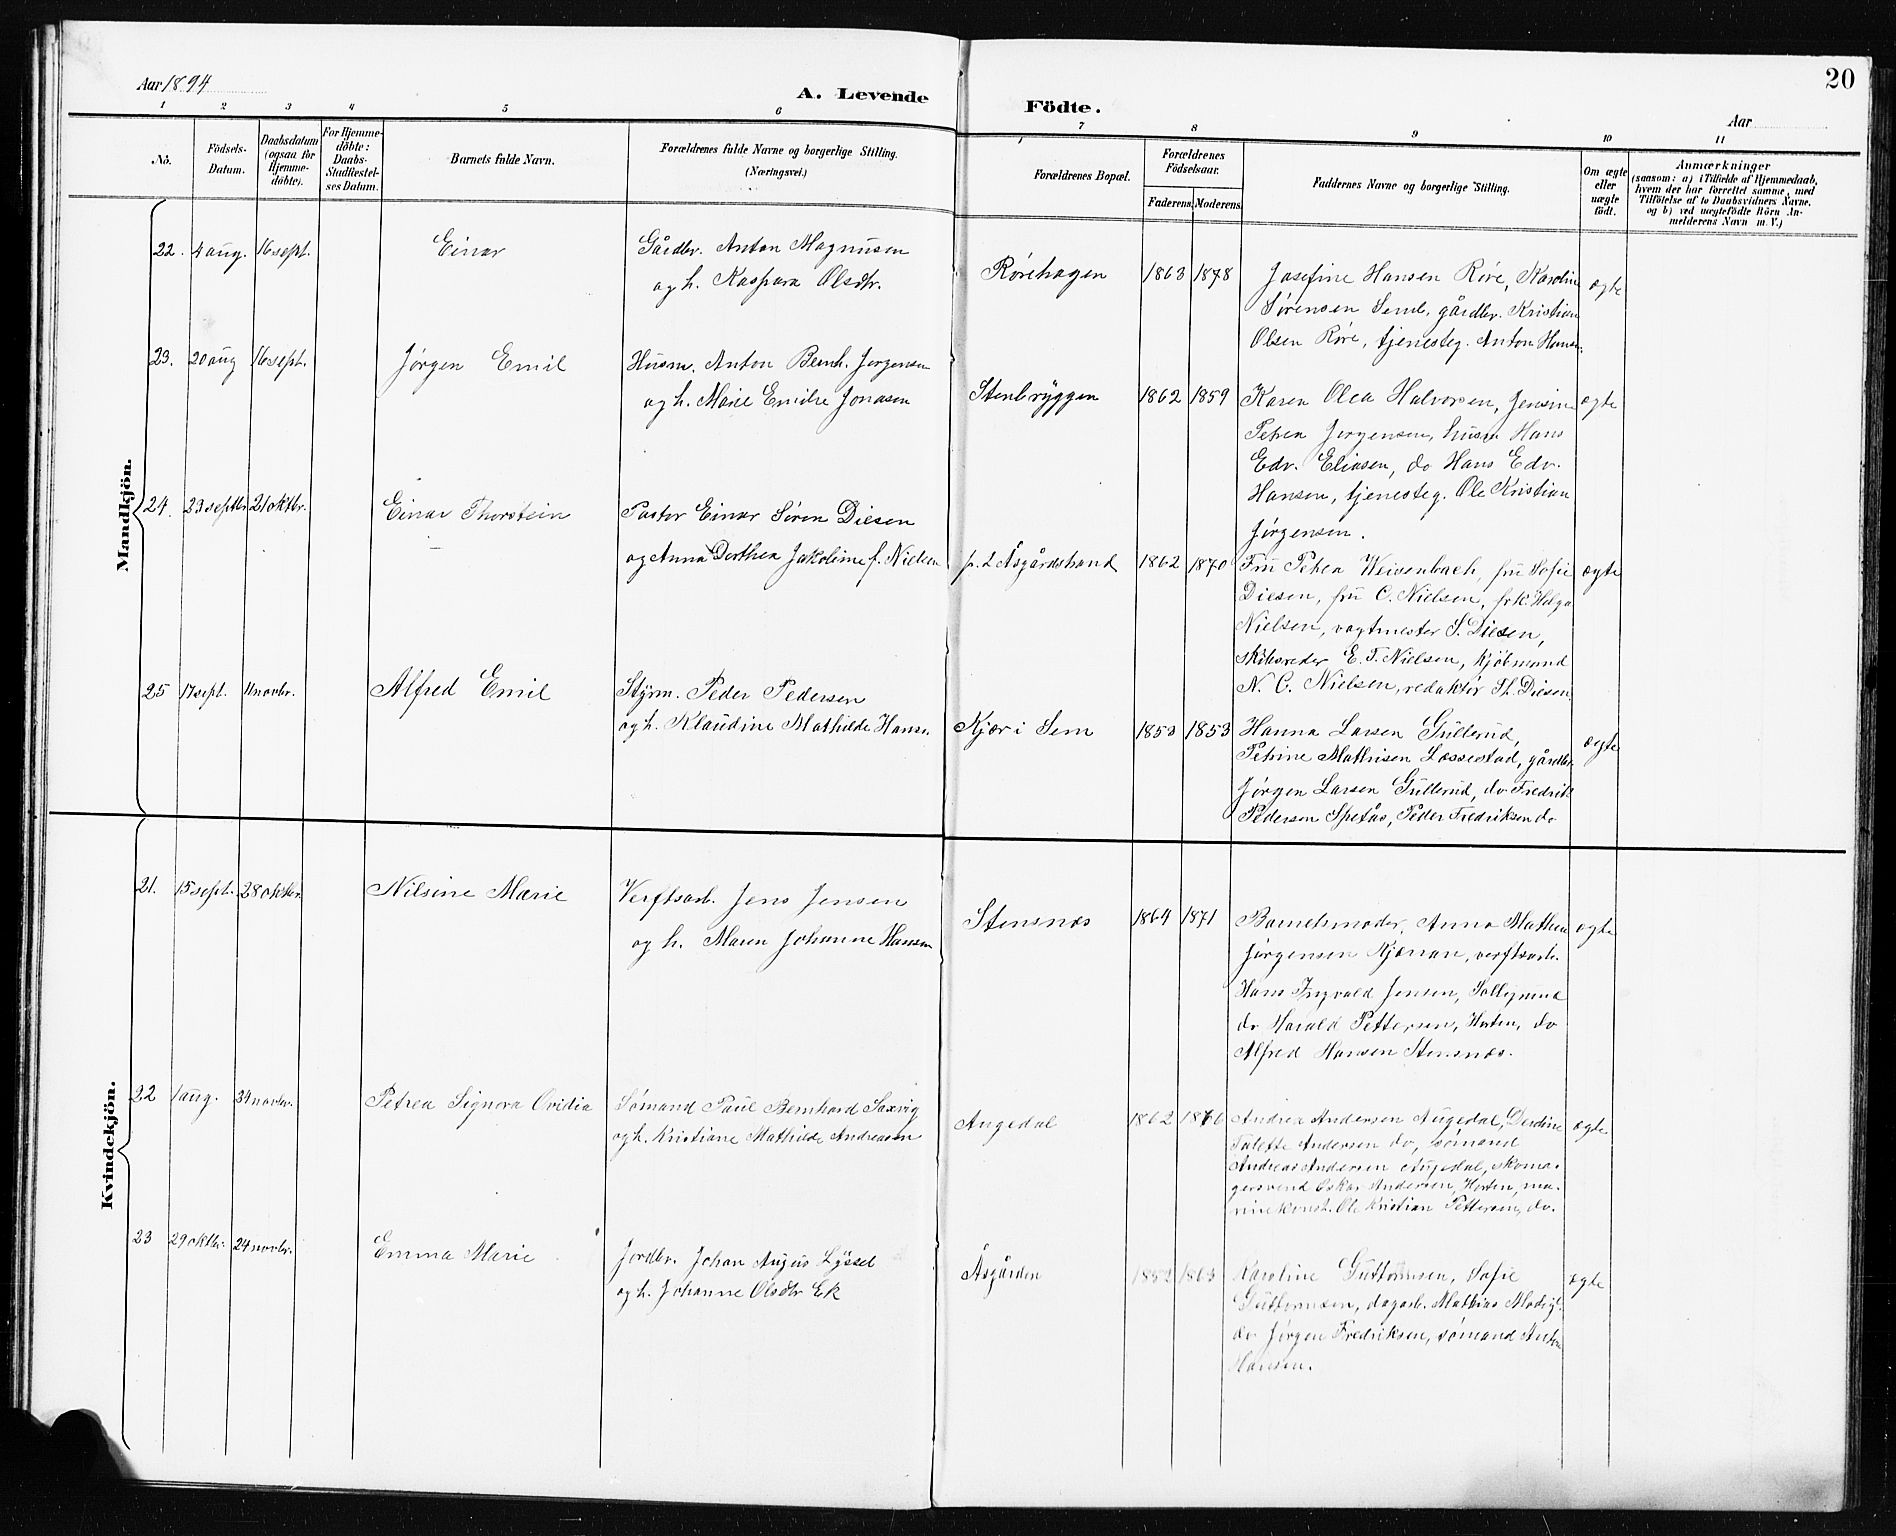 Aar 1894
A. Levende Födte.
20
Aar
1 2 3 4 5 6 7 8 9 10 11
No.
Födsels-Datum.
Daabsdatum (ogsaa for Hjemmedöbte).
For Hjemmedöbte: Daabs-Stadfæstelses Datum.
Barnets fulde Navn.
Forældrenes fulde Navne og borgerlige Stilling. (Næringsvei.)
Forældrenes Bopæl.
Forældrenes Födselsaar.
Faderens. Moderens.
Faddernes Navne og borgerlige Stilling.
Om ægte eller uægte födt.
Anmærkninger
(saasom: a) i Tilfælde af Hjemmedaab,
hvem der har forrettet samme, med
Tilföielse af to Daabsvidners Navne.
og b) ved uægtefödte Börn An-
melderens Navn m. V.)
Mandkjön.
22. 4 aug. 16 sept. Einar
Gårdbr. Anton Magnusen
og h. Kaspara Olsdtr.
Rørehagen 1863 1878
Josefine Hansen Røre, Karoline
Sørensen Semb, gårdbr. Kristian
Olsen Røre, tjenesteg. Anton Hansen.
ægte
23. 20 aug 16 sept. Jørgen Emil
Husm. Anton Bernh. Jørgensen
og h. Marie Emilie Jonasen
Stenbryggen 1862 1859
Karen Olea Halvorsen, Jensine
Petrea Jørgensen, husm Hans
Edv. Eliasen, do Hans Edv.
Hansen, tjenesteg. Ole Kristian
Jørgensen.
ægte
24. 23 septbr 21 oktbr. Einar Thorstein
Pastor Einar Søren Diesen
og Anna Dorthea Jakobine f. Nielsen
p. t. Åsgårdstrand 1862 1870
Fru Petrea Weisenbach, fru Sofie
Diesen, fru C. Nielsen, frk. Helga
Nielsen, vagtmester S. Diesen,
skibsreder E. T. Nielsen, kjøbmand
N. C. Nielsen, redaktør Th. Diesen
ægte
25 17 sept. 11 novbr. Alfred Emil
Styrm. Peder Pedersen
og h. Klaudine Mathilde Hansen
Kjær i Sem 1853 1853
Hanna Larsen Gullerud,
Petrine Mathisen Læssestad, gårdbr.
Jørgen Larsen Gullerud, do Fredrik
Pedersen Spetås, Peder Fredriksen do
ægte
Kvindekjön.
21. 15 sept. 28 oktbr. Nilsine Marie
Verftsarb. Jens Jensen
og h. Maren Johanne Hansen
Stensnæs 1864 1871
Barnets moder, Anna Mathea
Jørgensen Kjænan, verftsarb.
Hans Ingvald Jensen,
do Harald Pettersen, Horten, do
Alfred Hansen Stensnæs.
ægte
22 1 aug. 24 novbr. Petrea Signora Ovidia
Sømand Paul Bernhard Saxvig
og h. Kristiane Mathilde Andreasen
Augedal 1862 1866
Andrea Andersen Augedal,
Talette Andersen do, sømand
Andreas Andersen Augedal, skoma-
gersvend Oskar Andersen, Horten, ma-
rinekonst. Ole Kristian Pettersen, do.
ægte
23 29 oktbr. 24 novbr. Emma Marie
Jordbr. Johan Augus Lyssel
og h. Johanne Olsdtr Ek
Åsgården 1852 1863
Karoline Guttormsen, Sofie
Guttormsen, dagarb. Mathias
do Jørgen Fredriksen, sømand Anton
Hansen.
ægte